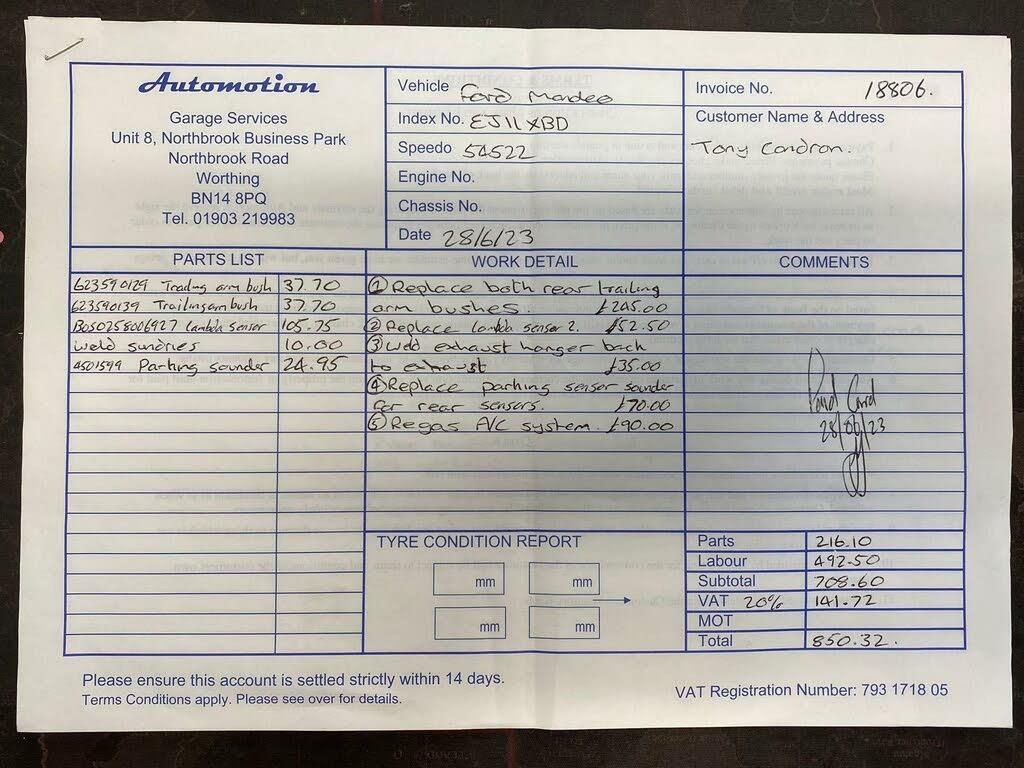 Automotion
Garage Services
Unit 8, Northbrook Business Park
Northbrook Road
Worthing
BN14 8PQ
Tel. 01903 219983
Vehicle Ford Mondeo
Index No. EJ11 XBD
Speedo 54522
Engine No.
Chassis No.
Date 28/6/23
Invoice No. 18806.
Customer Name & Address
Tony Condron.
PARTS LIST
623590129 Trailing arm bush 37.70
623590139 Trailing arm bush 37.70
BOS0258006927 Lambda sensor 105.75
Weld sundries 10.00
4501599 Parking sounder 24.95
WORK DETAIL
① Replace both rear trailing
arm bushes. £245.00
② Replace lambda sensor 2. £52.50
③ Weld exhaust hanger back
to exhaust £35.00
④ Replace parking sensor sounder
for rear sensors. £70.00
⑤ Regas A/C system. £90.00
COMMENTS
Paid Card
28/06/23
TYRE CONDITION REPORT
mm mm
mm mm
Parts 216.10
Labour 492.50
Subtotal 708.60
VAT 20% 141.72
MOT
Total 850.32.
Please ensure this account is settled strictly within 14 days.
Terms Conditions apply. Please see over for details.
VAT Registration Number: 793 1718 05